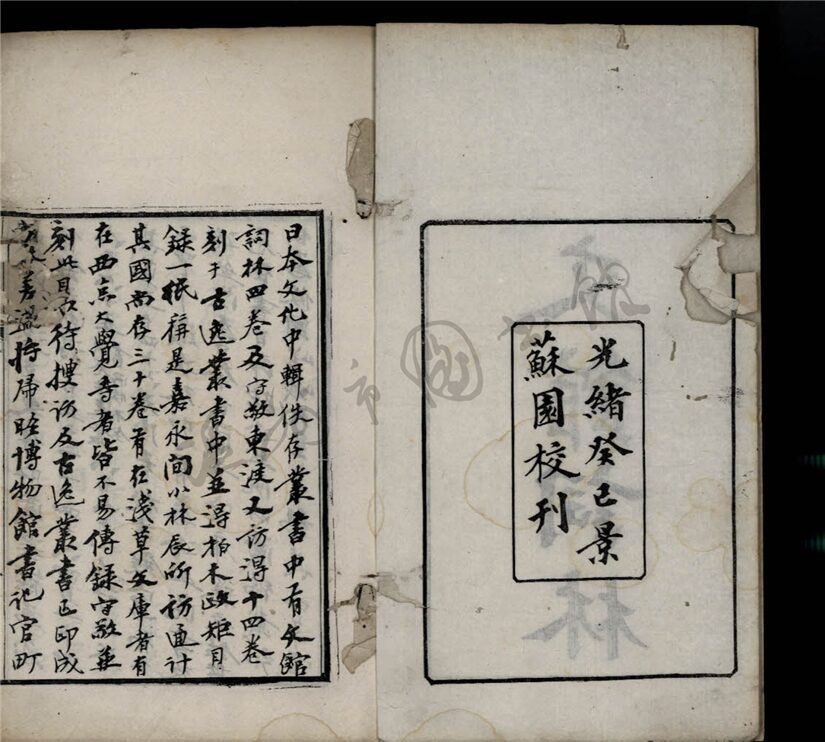 光緒癸巳景
蘇園校刊
日本文化中輯佚存叢書中有文館
詞林四卷及守敬東渡又訪得十四卷
刻于古逸叢書中並得柏木政矩目
錄一紙稱是嘉永間小林辰所訪通計
其國尚存三十卷有在淺草文庫者有
在西京大覺寺者皆不易傳錄守敬並
刻此目以待搜訪及古逸叢書已印成
差滿將歸晤博物館書記官町